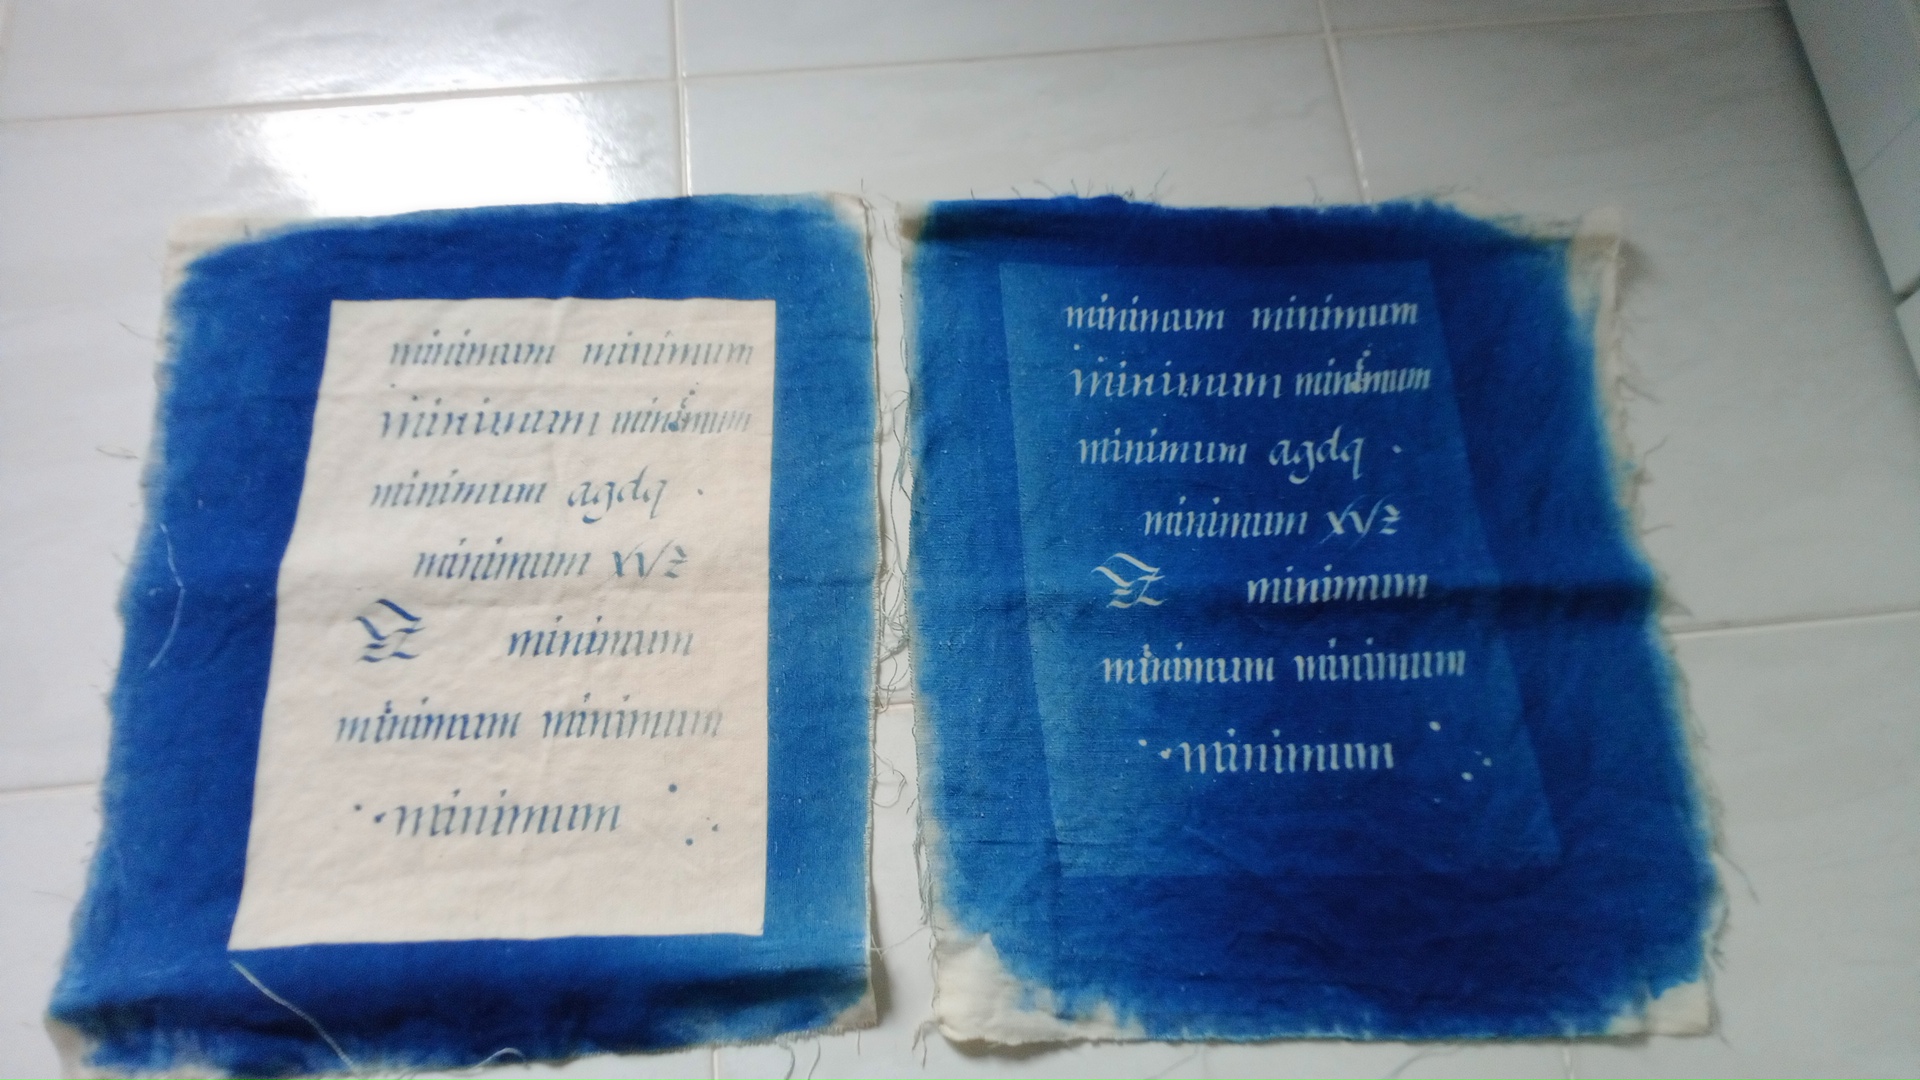 minimum minimum
minimum minimum
minimum agdq
minimum xyz
minimum
minimum minimum
minimum
minimum minimum
minimum minimum
minimum agdq
minimum xyz
minimum
minimum minimum
minimum